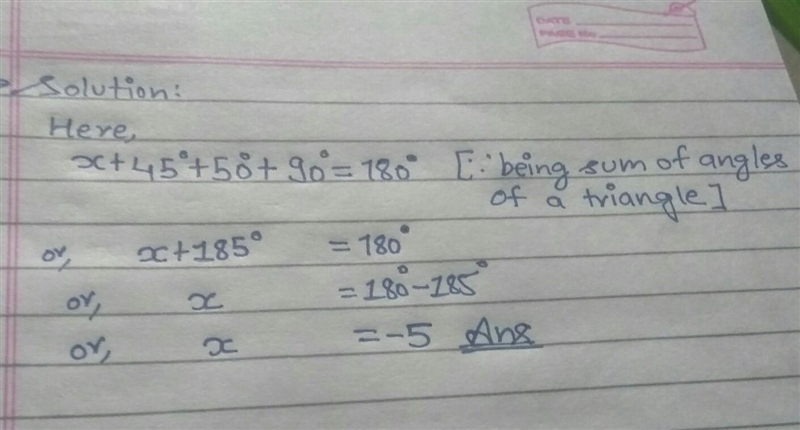 DATE
PAGE NO
Solution:
Here,
x+45°+50°+90°=180° [∵being sum of angles
of a triangle]
or, x+185° =180°
or, x =180°-185°
or, x =-5 Ans